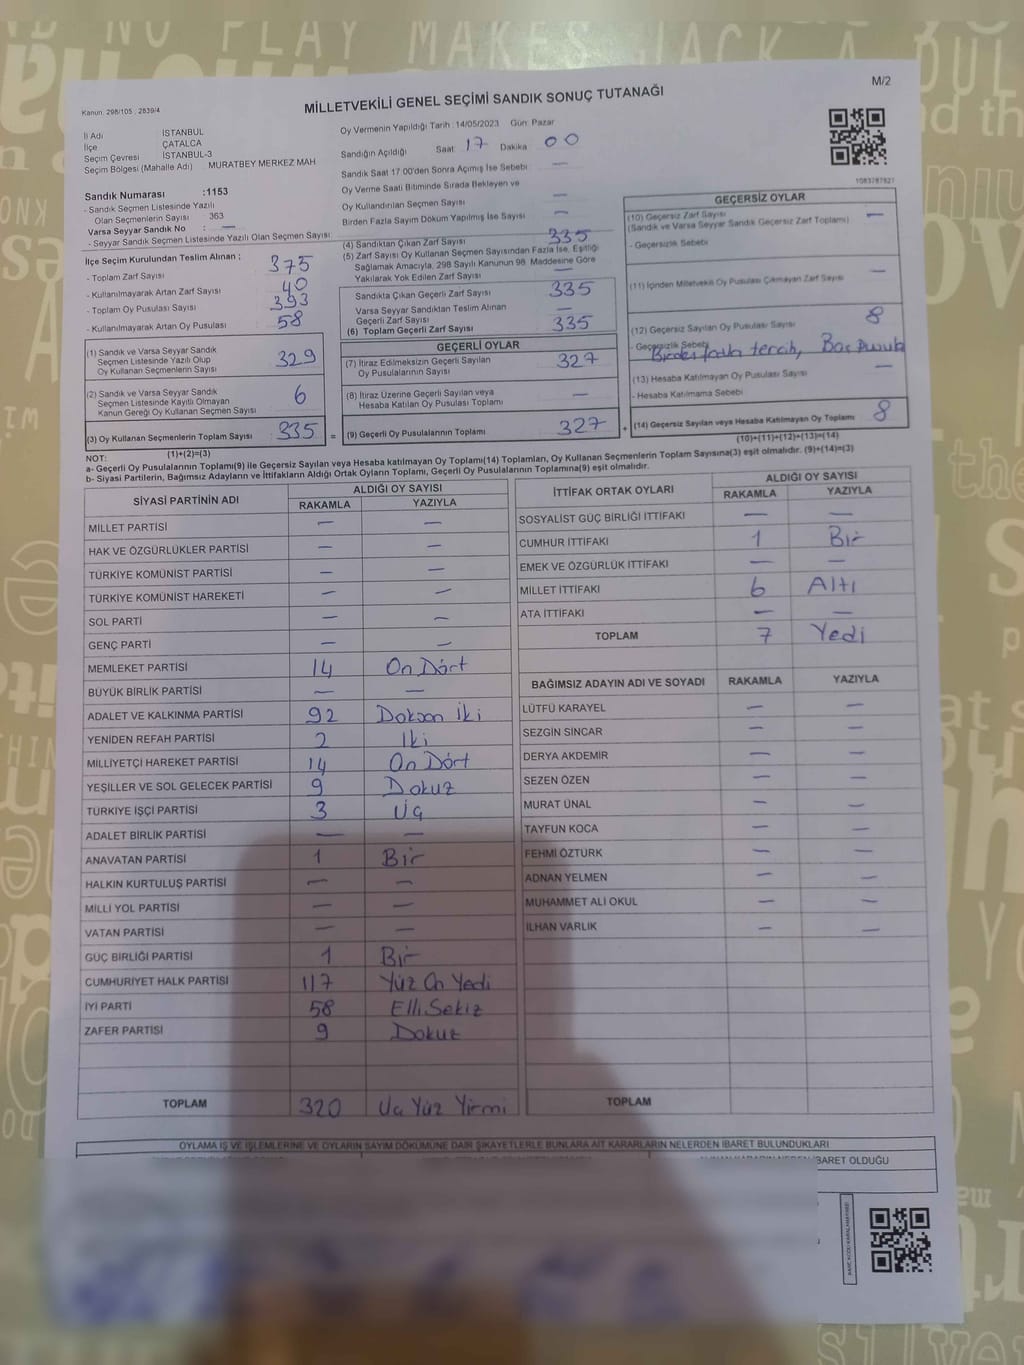 M/2
Kanun: 298/105 : 2839/4
MİLLETVEKİLİ GENEL SEÇİMİ SANDIK SONUÇ TUTANAĞI
İl Adı İSTANBUL
İlçe ÇATALCA
Seçim Çevresi İSTANBUL-3
Seçim Bölgesi (Mahalle Adı) MURATBEY MERKEZ MAH
Sandık Numarası :1153
- Sandık Seçmen Listesinde Yazılı
Olan Seçmenlerin Sayısı 363
Varsa Seyyar Sandık No : —
- Seyyar Sandık Seçmen Listesinde Yazılı Olan Seçmen Sayısı:
İlçe Seçim Kurulundan Teslim Alınan ;
- Toplam Zarf Sayısı 375
- Kullanılmayarak Artan Zarf Sayısı 40
- Toplam Oy Pusulası Sayısı 393
- Kullanılmayarak Artan Oy Pusulası 58
(1) Sandık ve Varsa Seyyar Sandık
Seçmen Listesinde Yazılı Olup
Oy Kullanan Seçmenlerin Sayısı 329
(2) Sandık ve Varsa Seyyar Sandık
Seçmen Listesinde Kayıtlı Olmayan
Kanun Gereği Oy Kullanan Seçmen Sayısı 6
(3) Oy Kullanan Seçmenlerin Toplam Sayısı 335 =
(1)+(2)=(3)
Oy Vermenin Yapıldığı Tarih : 14/05/2023 Gün: Pazar
Sandığın Açıldığı Saat: 17 Dakika 00
Sandık Saat 17:00'den Sonra Açımış İse Sebebi —
Oy Verme Saati Bitiminde Sırada Bekleyen ve
Oy Kullandırılan Seçmen Sayısı —
Birden Fazla Sayım Döküm Yapılmış İse Sayısı —
(4) Sandıktan Çıkan Zarf Sayısı 335
(5) Zarf Sayısı Oy Kullanan Seçmen Sayısından Fazla İse, Eşitliği
Sağlamak Amacıyla, 298 Sayılı Kanunun 98. Maddesine Göre
Yakılarak Yok Edilen Zarf Sayısı —
Sandıkta Çıkan Geçerli Zarf Sayısı 335
Varsa Seyyar Sandıktan Teslim Alınan
Geçerli Zarf Sayısı —
(6) Toplam Geçerli Zarf Sayısı 335
GEÇERLİ OYLAR
(7) İtiraz Edilmeksizin Geçerli Sayılan
Oy Pusulalarının Sayısı 327
(8) İtiraz Üzerine Geçerli Sayılan veya
Hesaba Katılan Oy Pusulası Toplamı —
(9) Geçerli Oy Pusulalarının Toplamı 327 +
1083787827
GEÇERSİZ OYLAR
(10) Geçersiz Zarf Sayısı —
(Sandık ve Varsa Seyyar Sandık Geçersiz Zarf Toplamı)
- Geçersizlik Sebebi
(11) İçinden Milletvekili Oy Pusulası Çıkmayan Zarf Sayısı —
(12) Geçersiz Sayılan Oy Pusulası Sayısı 8
- Geçersizlik Sebebi Birden fazla tercih, Boş Pusula
(13) Hesaba Katılmayan Oy Pusulası Sayısı —
- Hesaba Katılmama Sebebi
(14) Geçersiz Sayılan veya Hesaba Katılmayan Oy Toplamı 8
(10)+(11)+(12)+(13)=(14)
NOT:
a- Geçerli Oy Pusulalarının Toplamı(9) ile Geçersiz Sayılan veya Hesaba katılmayan Oy Toplamı(14) Toplamları, Oy Kullanan Seçmenlerin Toplam Sayısına(3) eşit olmalıdır. (9)+(14)=(3)
b- Siyasi Partilerin, Bağımsız Adayların ve İttifakların Aldığı Ortak Oyların Toplamı, Geçerli Oy Pusulalarının Toplamına(9) eşit olmalıdır.
SİYASİ PARTİNİN ADI ALDIĞI OY SAYISI
RAKAMLA YAZIYLA
MİLLET PARTİSİ — —
HAK VE ÖZGÜRLÜKLER PARTİSİ — —
TÜRKİYE KOMÜNİST PARTİSİ — —
TÜRKİYE KOMÜNİST HAREKETİ — —
SOL PARTİ — —
GENÇ PARTİ — —
MEMLEKET PARTİSİ 14 On Dört
BÜYÜK BİRLİK PARTİSİ — —
ADALET VE KALKINMA PARTİSİ 92 Doksan İki
YENİDEN REFAH PARTİSİ 2 İki
MİLLİYETÇİ HAREKET PARTİSİ 14 On Dört
YEŞİLLER VE SOL GELECEK PARTİSİ 9 Dokuz
TÜRKİYE İŞÇİ PARTİSİ 3 Üç
ADALET BİRLİK PARTİSİ — —
ANAVATAN PARTİSİ 1 Bir
HALKIN KURTULUŞ PARTİSİ — —
MİLLİ YOL PARTİSİ — —
VATAN PARTİSİ — —
GÜÇ BİRLİĞİ PARTİSİ 1 Bir
CUMHURİYET HALK PARTİSİ 117 Yüz On Yedi
İYİ PARTİ 58 Elli Sekiz
ZAFER PARTİSİ 9 Dokuz
TOPLAM 320 Üç Yüz Yirmi
İTTİFAK ORTAK OYLARI ALDIĞI OY SAYISI
RAKAMLA YAZIYLA
SOSYALİST GÜÇ BİRLİĞİ İTTİFAKI — —
CUMHUR İTTİFAKI 1 Bir
EMEK VE ÖZGÜRLÜK İTTİFAKI — —
MİLLET İTTİFAKI 6 Altı
ATA İTTİFAKI — —
TOPLAM 7 Yedi
BAĞIMSIZ ADAYIN ADI VE SOYADI RAKAMLA YAZIYLA
LÜTFÜ KARAYEL — —
SEZGİN SİNCAR — —
DERYA AKDEMİR — —
SEZEN ÖZEN — —
MURAT ÜNAL — —
TAYFUN KOCA — —
FEHMİ ÖZTÜRK — —
ADNAN YELMEN — —
MUHAMMET ALİ OKUL — —
İLHAN VARLIK — —
TOPLAM
OYLAMA İŞ VE İŞLEMLERİNE VE OYLARIN SAYIM DÖKÜMÜNE DAİR ŞİKAYETLERLE BUNLARA AİT KARARLARIN NELERDEN İBARET BULUNDUKLARI
İBARET OLDUĞU